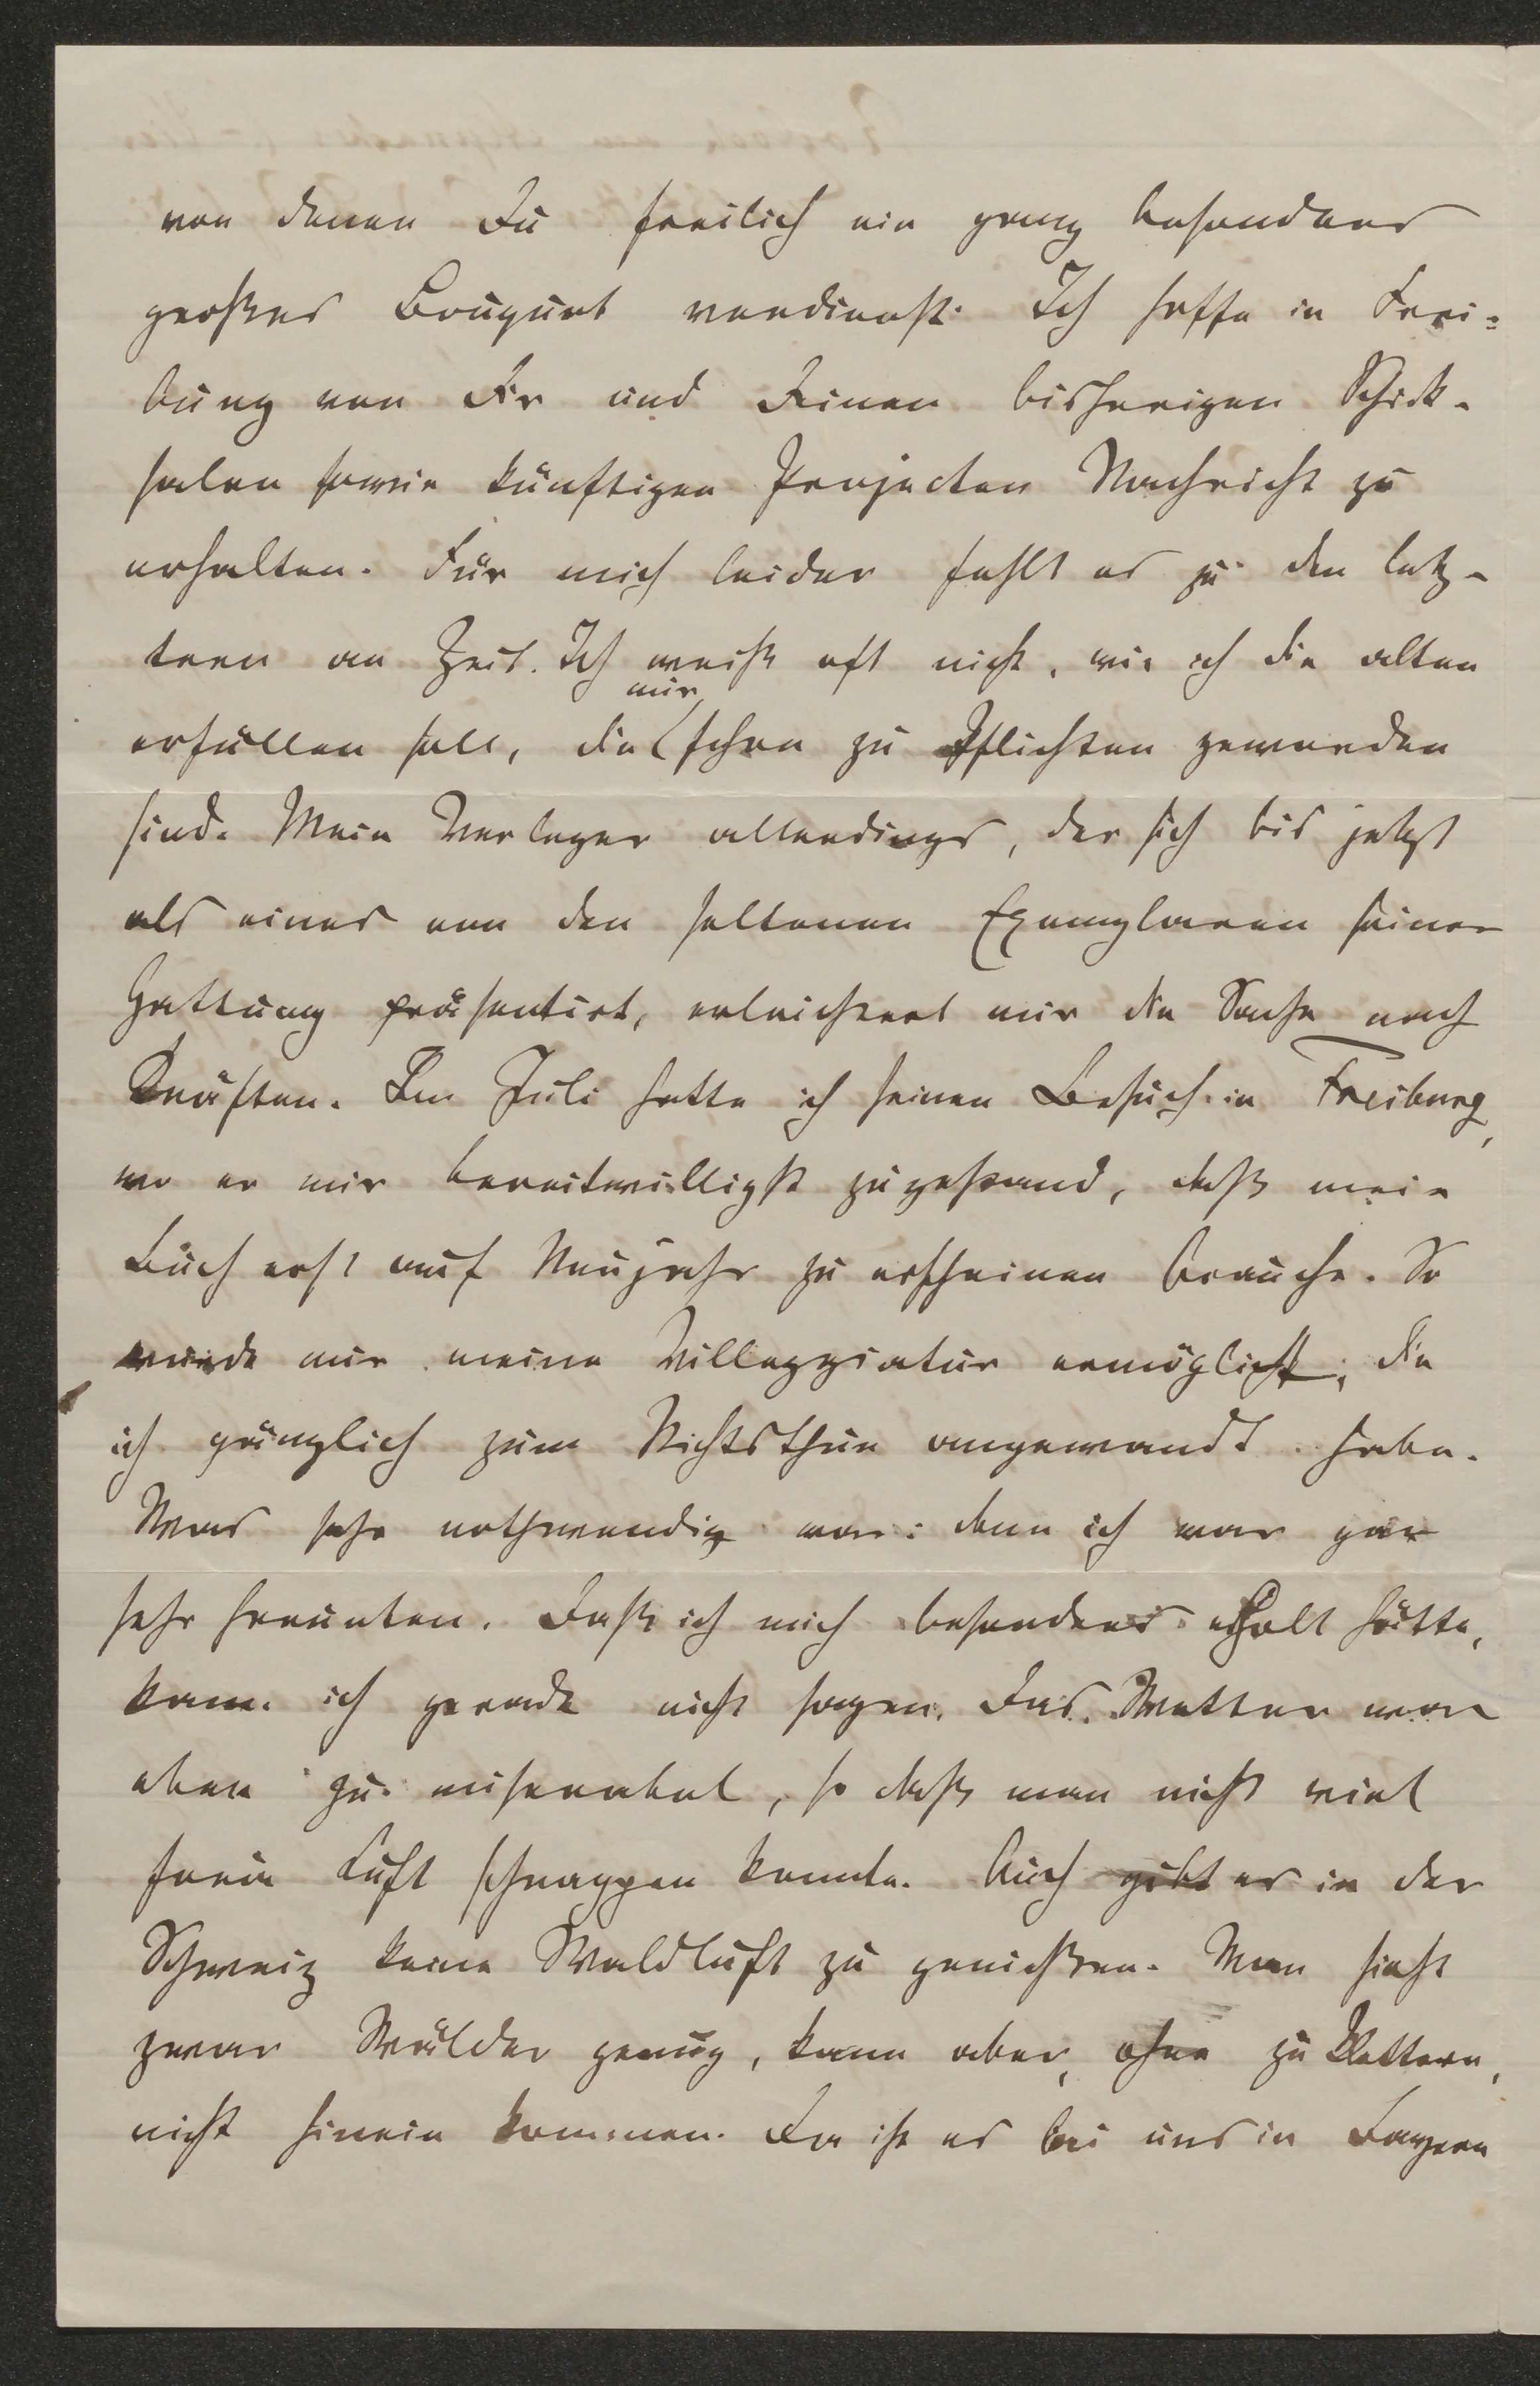 von denen Du freilich ein ganz besonders
großes Bouquet verdienst. Ich hoffe in Frei-
burg von Dir und Deinen bisherigen Schick-
salen sowie künftigen Projecten Nachricht zu
erhalten. Für mich leider fehlt es zu den letz-
tern an Zeit. Ich weiß oft nicht, wie ich die alten
mir
erfüllen soll, die schon zu Pflichten geworden
sind. Mein Verleger allerdings, der sich bis jetzt
als eines von den seltenen Exemplaren seiner
Gattung präsentirt, erleichtert mir die Sache nach
Kräften. Im Juli hatte ich seinen Besuch in Freiburg,
wo er mir bereitwilligst zugestand, daß mein
Buch erst auf Neujahr zu erscheinen brauche. So
wurde mir meine Villeggiatur ermöglicht, die
ich gänzlich zum Nichtsthun angewandt habe.
Was sehr nothwendig war: denn ich war gar
sehr herunten. Daß ich mich besonders erholt hätte,
kann ich gerade nicht sagen. Das Wetter war
eben zu miserabel, so daß man nicht viel
freie Luft schnappen konnte. Auch gibt es in der
Schweiz keine Waldluft zu genießen. Man sieht
zwar Wälder genug, kann aber, ohne zu klettern,
nicht hinein kommen. Da ist es bei uns in Bayern